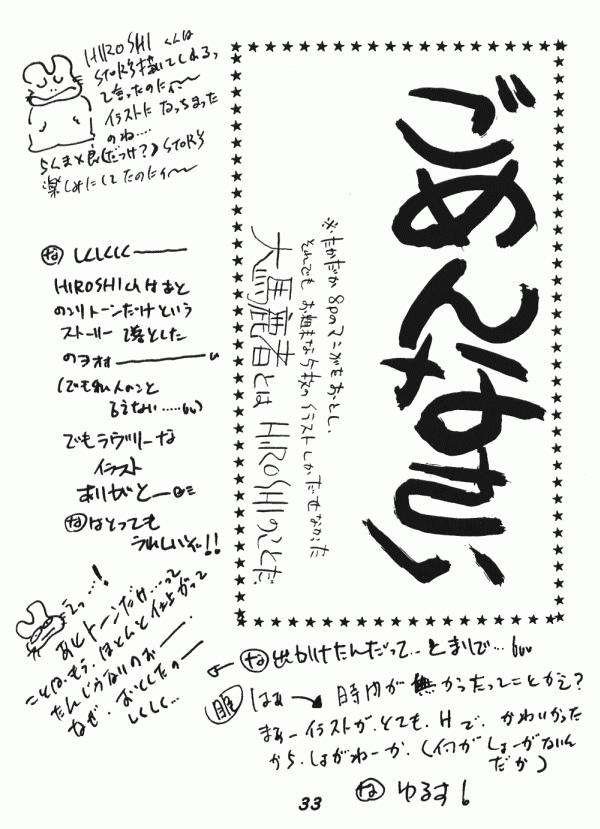 ごめんなさい
※たかだか8pのマンガもおとし、
それでもお粗末な5枚のイラストしかだせなかった
大馬鹿者とは HIROSHIのことだ
HIROSHIくんは
STORY描いてくれる、
て言ったのにィ〜
イラストに なっちまった
のね‥‥
STORY
楽しみにしてたのにィ〜
な しくしくしく―――
HIROSHIくんはあと
のこりトーンだけという
ストーリー を落とした
のヨォォ―――
(でも私人のこと
言えない……)
でもラヴリーな
イラスト
ありがとー
なはとっても
うれしいぞ!!
えっ…!
あとトーンだけ…って
ことは、もう、ほとんど仕上がって
たんじゃないのぉー
なぜ、おとしたのー
しくしく…
な 出かけたんだって… とまりで…
はぁ → 時間が無かったってことかえ?
まぁーイラストが、とても、Hで、かわいかった
から、しょがねーか、(何がしょーがないん
だか)
な ゆるす!
33